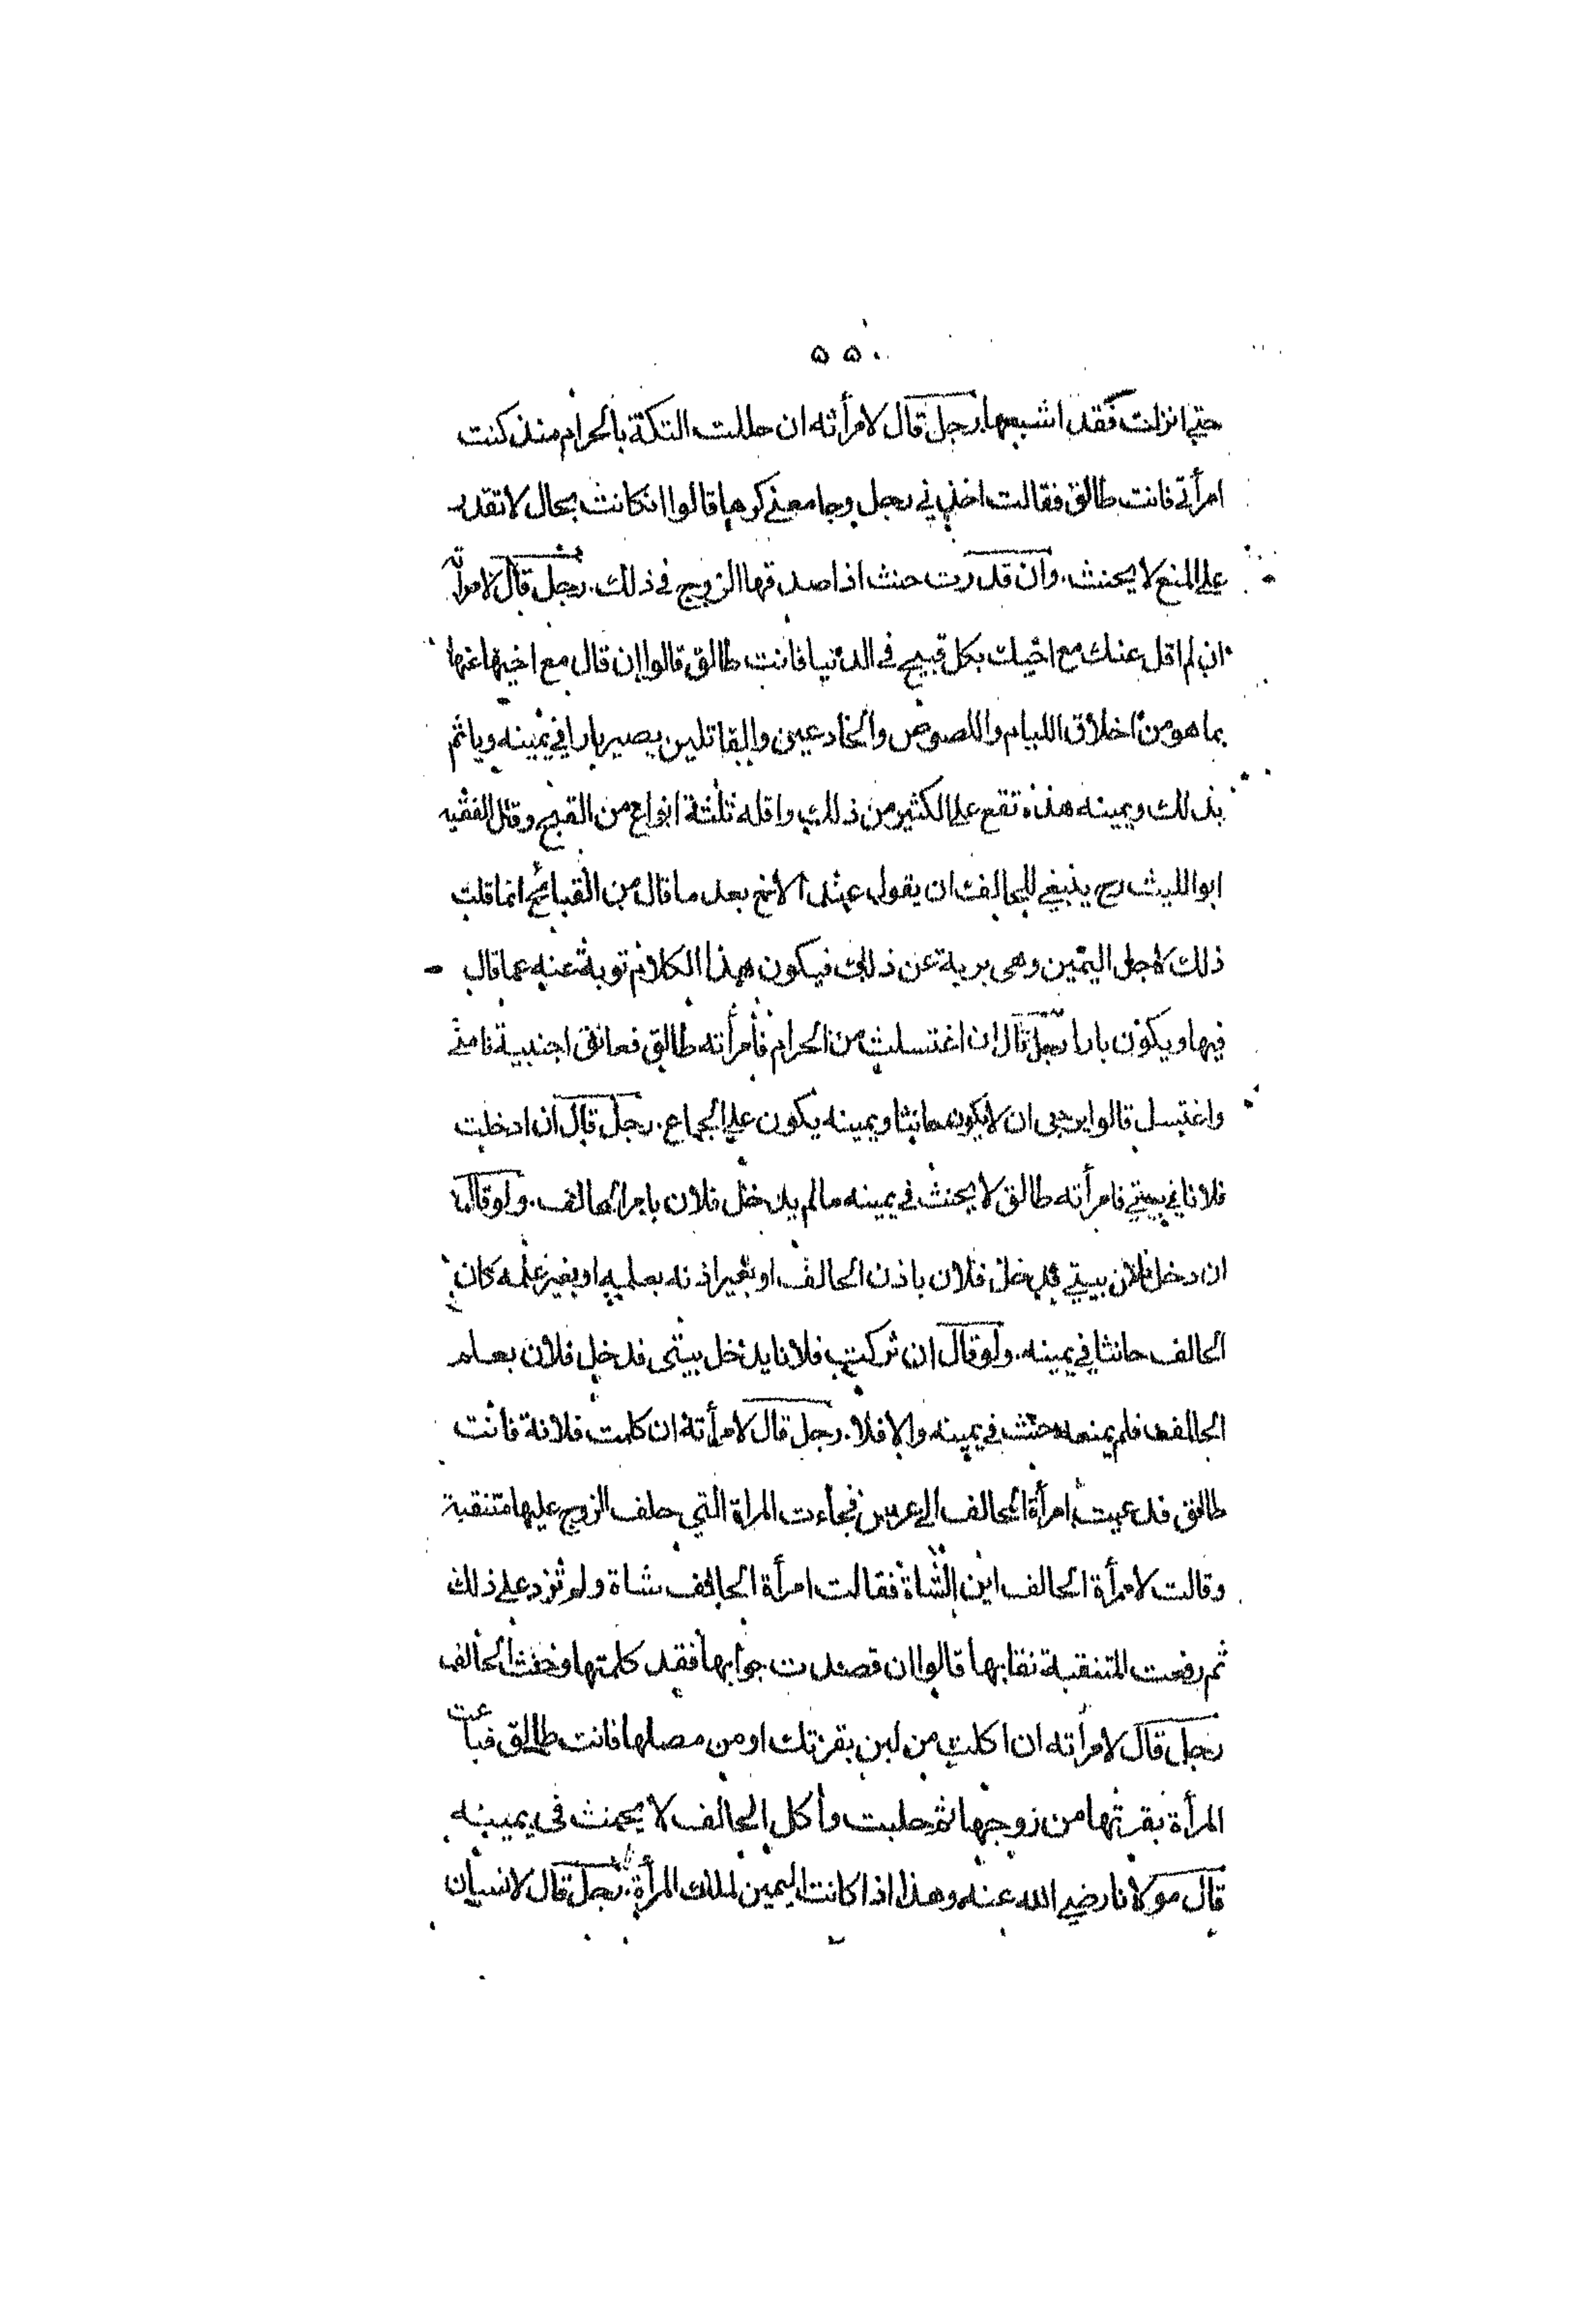 ٥٥٠
حتى انزلت فقد اشبعها. رجل قال لامرأته ان حللت التكة بالحرام منذ كنت
امرأتي فانت طالق فقالت اخذني رجل وجامعني كرها قالوا ان كانت بحال لا تقدر
على المنع لا يحنث. وان قدرت حنث اذا صدقها الزوج في ذلك. رجل قال لامرأته
ان لم اقل عنك مع اخيك بكل قبيح في الدنيا فانت طالق قالوا إن قال مع اخيها عنها
بما هو من اخلاق الليام واللصوص والخادعين والقاتلين يصير بارا في يمينه وياثم
بذلك ويمينه هذه تقع على الكثير من ذلك واقله ثلثة انواع من القبح وقال الفقيه
ابو الليث رح ينبغي للحالف ان يقول عند الاخ بعد ما قال من القبائح انما قلت
ذلك لاجل اليمين وهى برية عن ذلك فيكون هذا الكلام توبة عنه عما قال
فيها ويكون بارا رجل قال إن اغتسلت من الحرام فأمرأته طالق فعانق اجنبية فامنى
واغتسل قالوا يرجى ان لا يكون حانثا ويمينه يكون على الجماع. رجل قال ان ادخلت
فلانا في بيتي فامرأته طالق لا يحنث في يمينه ما لم يدخل فلان بامر الحالف. ولو قال
ان دخل فلان بيتي فدخل فلان باذن الحالف او بغير اذنه بعلمه او بغير علمه كان
الحالف حانثا في يمينه. ولو قال ان تركت فلانا يدخل بيتى فدخل فلان بعلم
الحالف فلم يمنعه حنث في يمينه والا فلا. رجل قال لامرأته ان كلمت فلانة فانت
طالق فدعيت امرأة الحالف الى عرس فجاءت المراة التي حلف الزوج عليها متنقبة
وقالت لامرأة الحالف اين الشاة فقالت امرأة الحالف شاة ولم تزد على ذلك
ثم رفعت المتنقبة نقابها قالوا ان قصدت جوابها فقد كلمتها وحنث الحالف
رجل قال لامرأته ان اكلت من لبن بقرتك او من مصلها فانت طالق فباعت
المرأة بقرتها من زوجها ثم حلبت وأكل الحالف لا يحنث فى يمينه
قال مولانا رضي الله عنه وهذا اذا كانت اليمين لملك المرأة. رجل قال لانسان